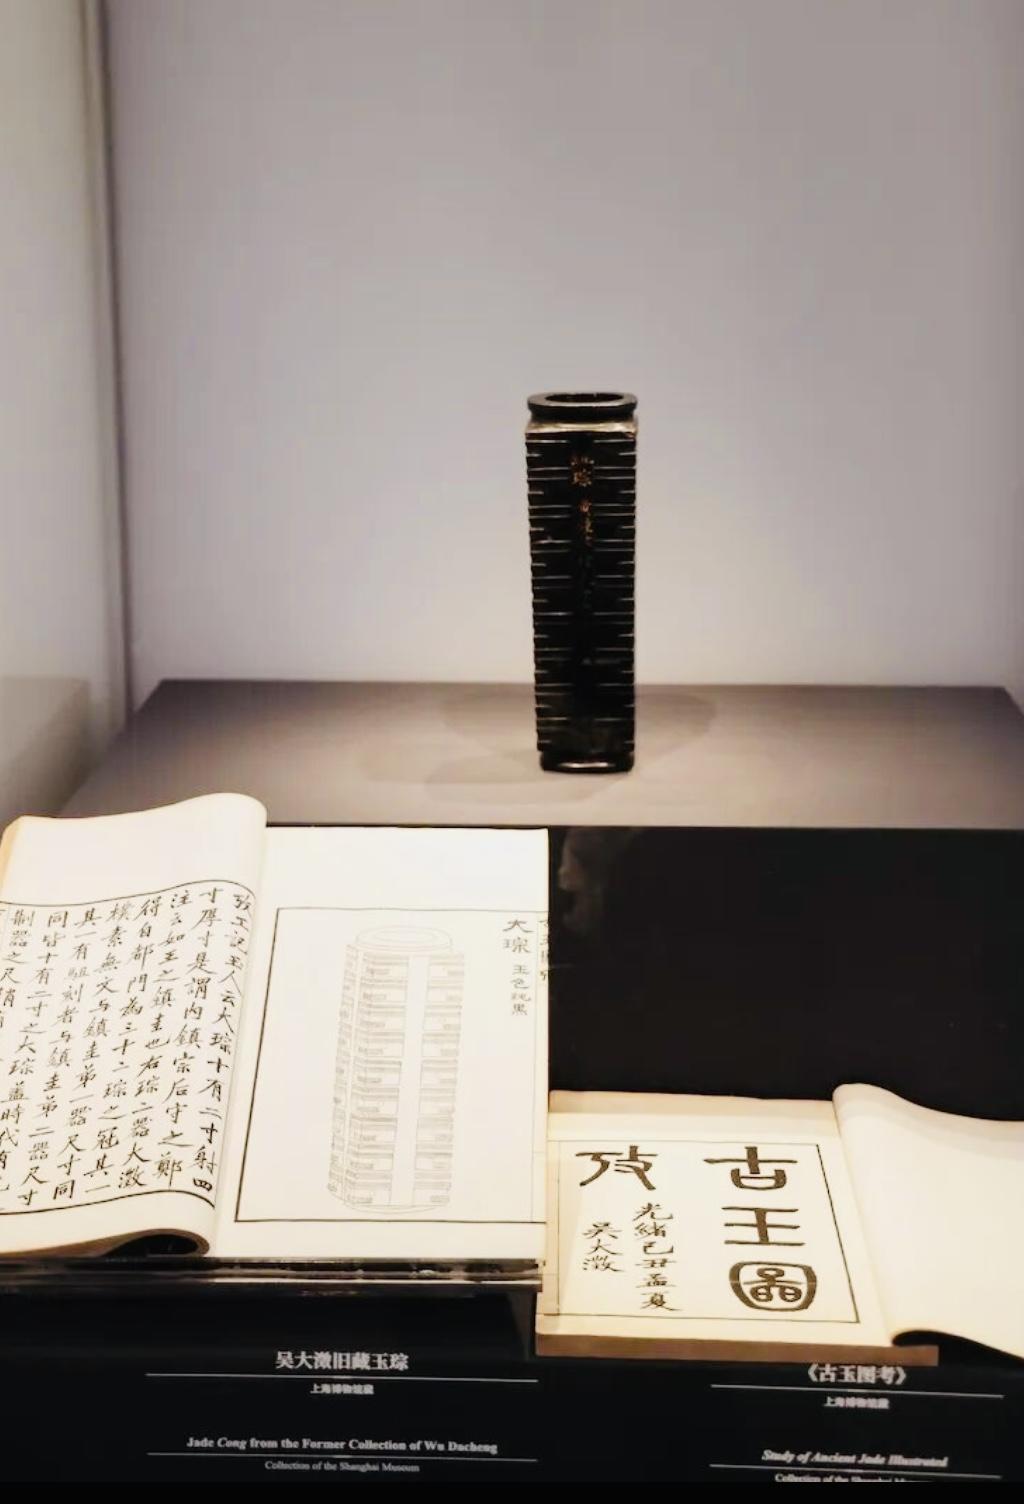 琮
大琮 玉色純黑
攷工記玉人云大琮十有二寸射四
寸厚寸是謂內鎮宗后守之鄭
注云如王之鎮圭也右琮二器大澂
得自都門為三十二琮之冠其一
樸素無文与鎮圭弟一器尺寸同
其一有駔刻者与鎮圭弟二器尺寸
同皆十有二寸之大琮蓋時代有
制器之尺稍有
古玉圖
攷
光緒己丑孟夏
吴大澂
吴大澂旧藏玉琮
上海博物馆藏
Jade Cong from the Former Collection of Wu Dacheng
Collection of the Shanghai Museum
《古玉图考》
上海博物馆藏
Study of Ancient Jade Illustrated
Collection of the Shanghai